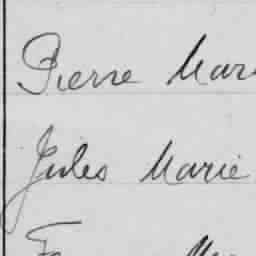 Pierre Mar
Jules Marie